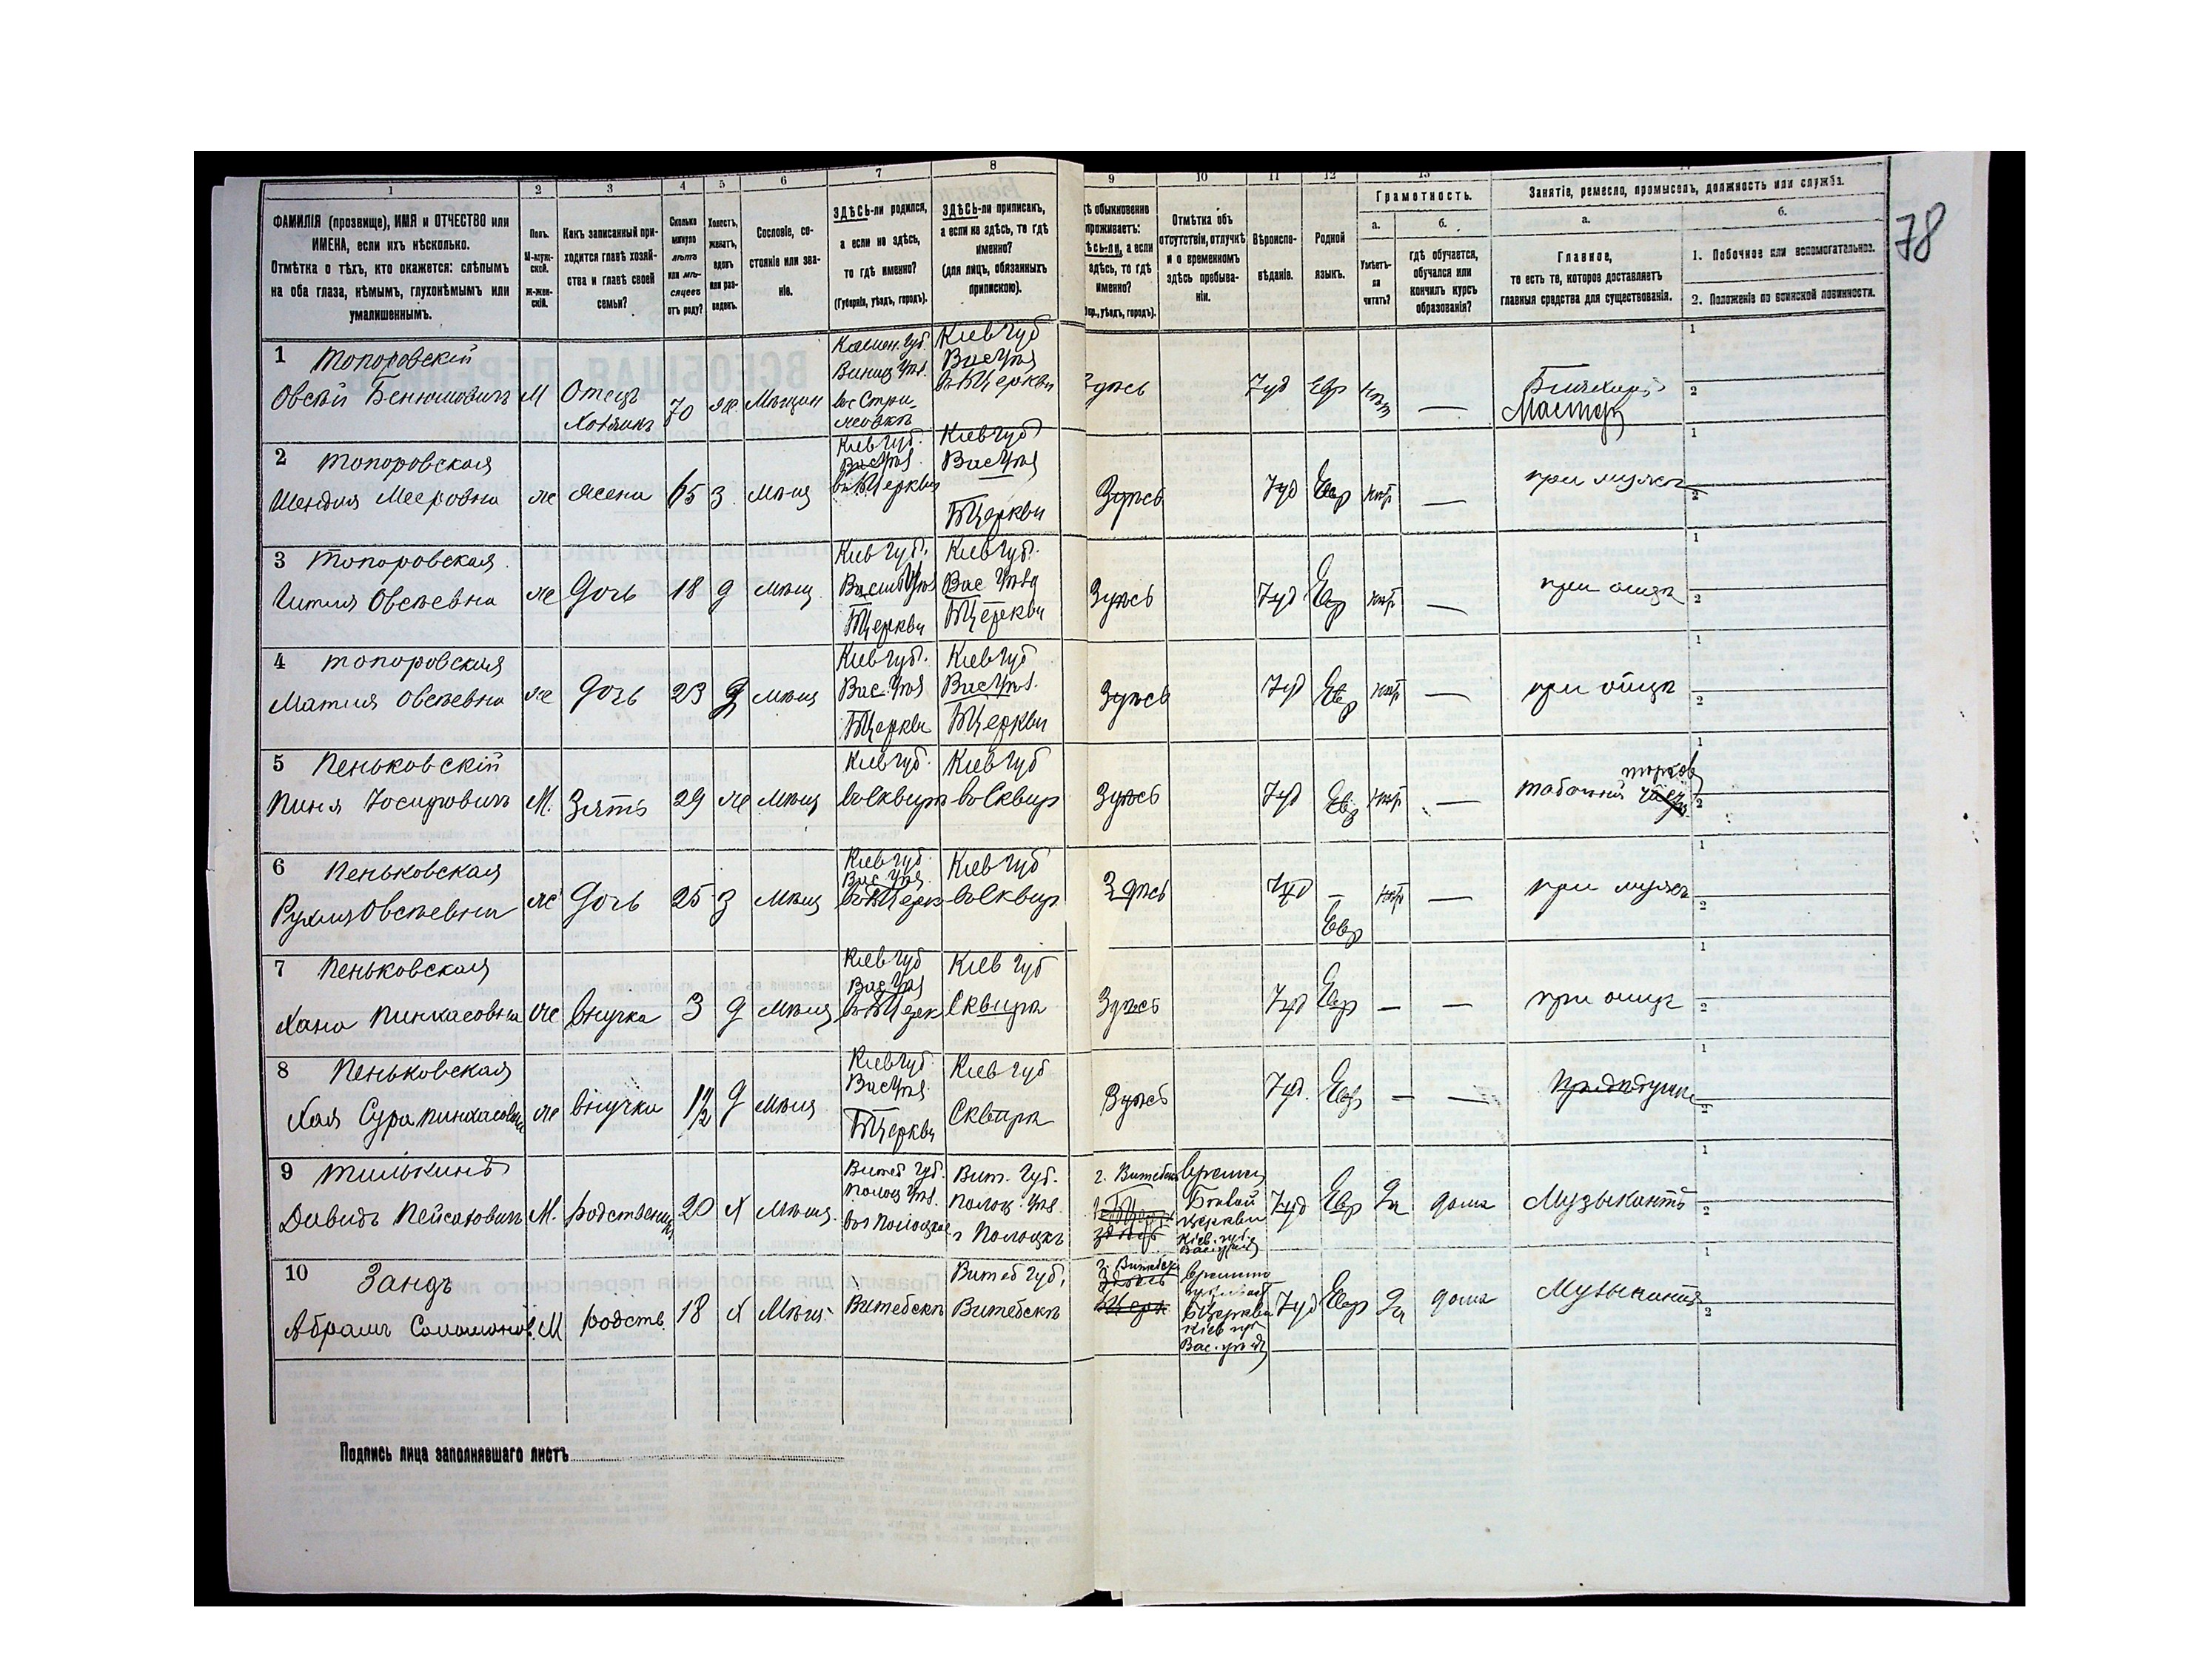 78
1
2
3
4
5
6
7
8
9
10
11
12
13
ФАМИЛІЯ (прозвище), ИМЯ и ОТЧЕСТВО или
ИМЕНА, если ихъ нѣсколько.
Отмѣтка о тѣхъ, кто окажется: слѣпымъ
на оба глаза, нѣмымъ, глухонѣмымъ или
умалишеннымъ.
Полъ.
М-муж-
ской.
Ж-жен-
скій.
Какъ записанный при-
ходится главѣ хозяй-
ства и главѣ своей
семьи?
Сколько
минуло
лѣтъ
или мѣ-
сяцевъ
отъ роду?
Холостъ,
женатъ,
вдовъ
или раз-
веденъ.
Сословіе, со-
стояніе или зва-
ніе.
ЗДѢСЬ-ли родился,
а если не здѣсь,
то гдѣ именно?
(Губернія, уѣздъ, городъ).
ЗДѢСЬ-ли приписанъ,
а если не здѣсь, то гдѣ
именно?
(для лицъ, обязанныхъ
припискою).
обыкновенно
проживаетъ:
а если
здѣсь, то гдѣ
именно?
уѣздъ, городъ).
Отмѣтка объ
отсутствіи, отлучкѣ
и о временномъ
здѣсь пребыва-
ніи.
Вѣроиспо-
вѣданіе.
Родной
языкъ.
Грамотность.
а.
Умѣетъ-
ли
читать?
б.
гдѣ обучается,
обучался или
кончилъ курсъ
образованія?
Занятіе, ремесло, промыселъ, должность или служба.
а.
Главное,
то есть то, которое доставляетъ
главныя средства для существованія.
б.
1. Побочное или вспомогательное.
2. Положеніе по воинской повинности.
1 Топоровскій
Овсѣй Бенюмовичъ М Отецъ 70 Мѣщан
Хозяинъ
Кіев Губ
Вас Уѣз
Здѣсь Іуд Евр нѣт —
Мастеръ
1
2
2 Топоровская
Шендля Мееровна же жена 65 З. Мѣщ
Кіев Губ.
Кіев Губ
Вас Уѣз
БЦеркви
Здѣсь Іуд Евр нѣт — при мужѣ
1
2
3 Топоровская
Гитля Овсѣевна же Дочь 18 Д мѣщ
Кіев Губ.
БЦеркви
Кіев Губ.
Вас Уѣзд
БЦеркви
Здѣсь Іуд Евр нѣт — при отцѣ
1
2
4 Топоровская
Матля Овсѣевна же Дочь 23 Д мѣщ
Кіев Губ.
Вас. Уѣз
БЦеркви
Кіев Губ
Вас Уѣз.
БЦеркви
Здѣсь Іуд Евр нѣт — при отцѣ
1
2
5 Пеньковскій
Пиня Іосифовичъ М. Зять 29 же Мѣщ
Кіев Губ.
Кіев Губ
Здѣсь Іуд Евр нѣт —
1
2
6 Пеньковская
Рухля Овсѣевна же Дочь 25 З Мѣщ
Кіев Губ.
Вас. Уѣз.
Кіев Губ
Здѣсь Іуд — нѣт — при мужѣ
Евр
1
2
7 Пеньковская
Хана Пинхасовна же Внучка 3 Д мѣщ
Кіев Губ
Вас Уѣз
Кіев Губ
Сквира
Здѣсь Іуд Евр — — при отцѣ
1
2
8 Пеньковская
Хая Сура Пинхасовна же Внучка 1 1/2 Д Мѣщ
Кіев Губ.
Вас Уѣз.
БЦеркви
Кіев Губ
Сквира
Здѣсь Іуд. Евр — —
1
2
9 Тилькинд
Давидъ Пейсаховичъ М. родственник 20 Х Мѣщ.
Витеб Губ.
Полоц Уѣз.
Вит. Губ.
Полоц. Уѣз.
г Полоцкъ
г. Витебск
Церкви
Кіев. губ.
Іуд Евр Да дома Музыкантъ
1
2
10 Зандъ
Абрамъ Соломонов. М родств. 18 Х Мѣщ.
Витебскъ
Витеб Губ.
Витебскъ
г. Витебск
БЦеркви
Кіев губ
Вас. уѣзд
Іуд Евр Да дома Музыкантъ
2
Подпись лица заполнявшаго листъ